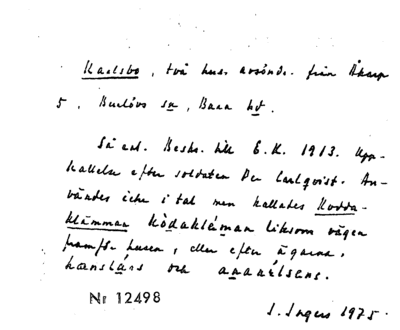 Karlsbo, två hus avsönd. från Åkarp
5, Burlövs sn, Bara hd.
Så enl. Beskr. till E.K. 1913. Upp-
kallelse efter soldaten Per Carlqvist. An-
vändes icke i tal men kallades Kodda-
klämman kòdakláman liksom vägen
framför husen, eller efter ägarna,
och
Nr 12498
S. Ingers 1975